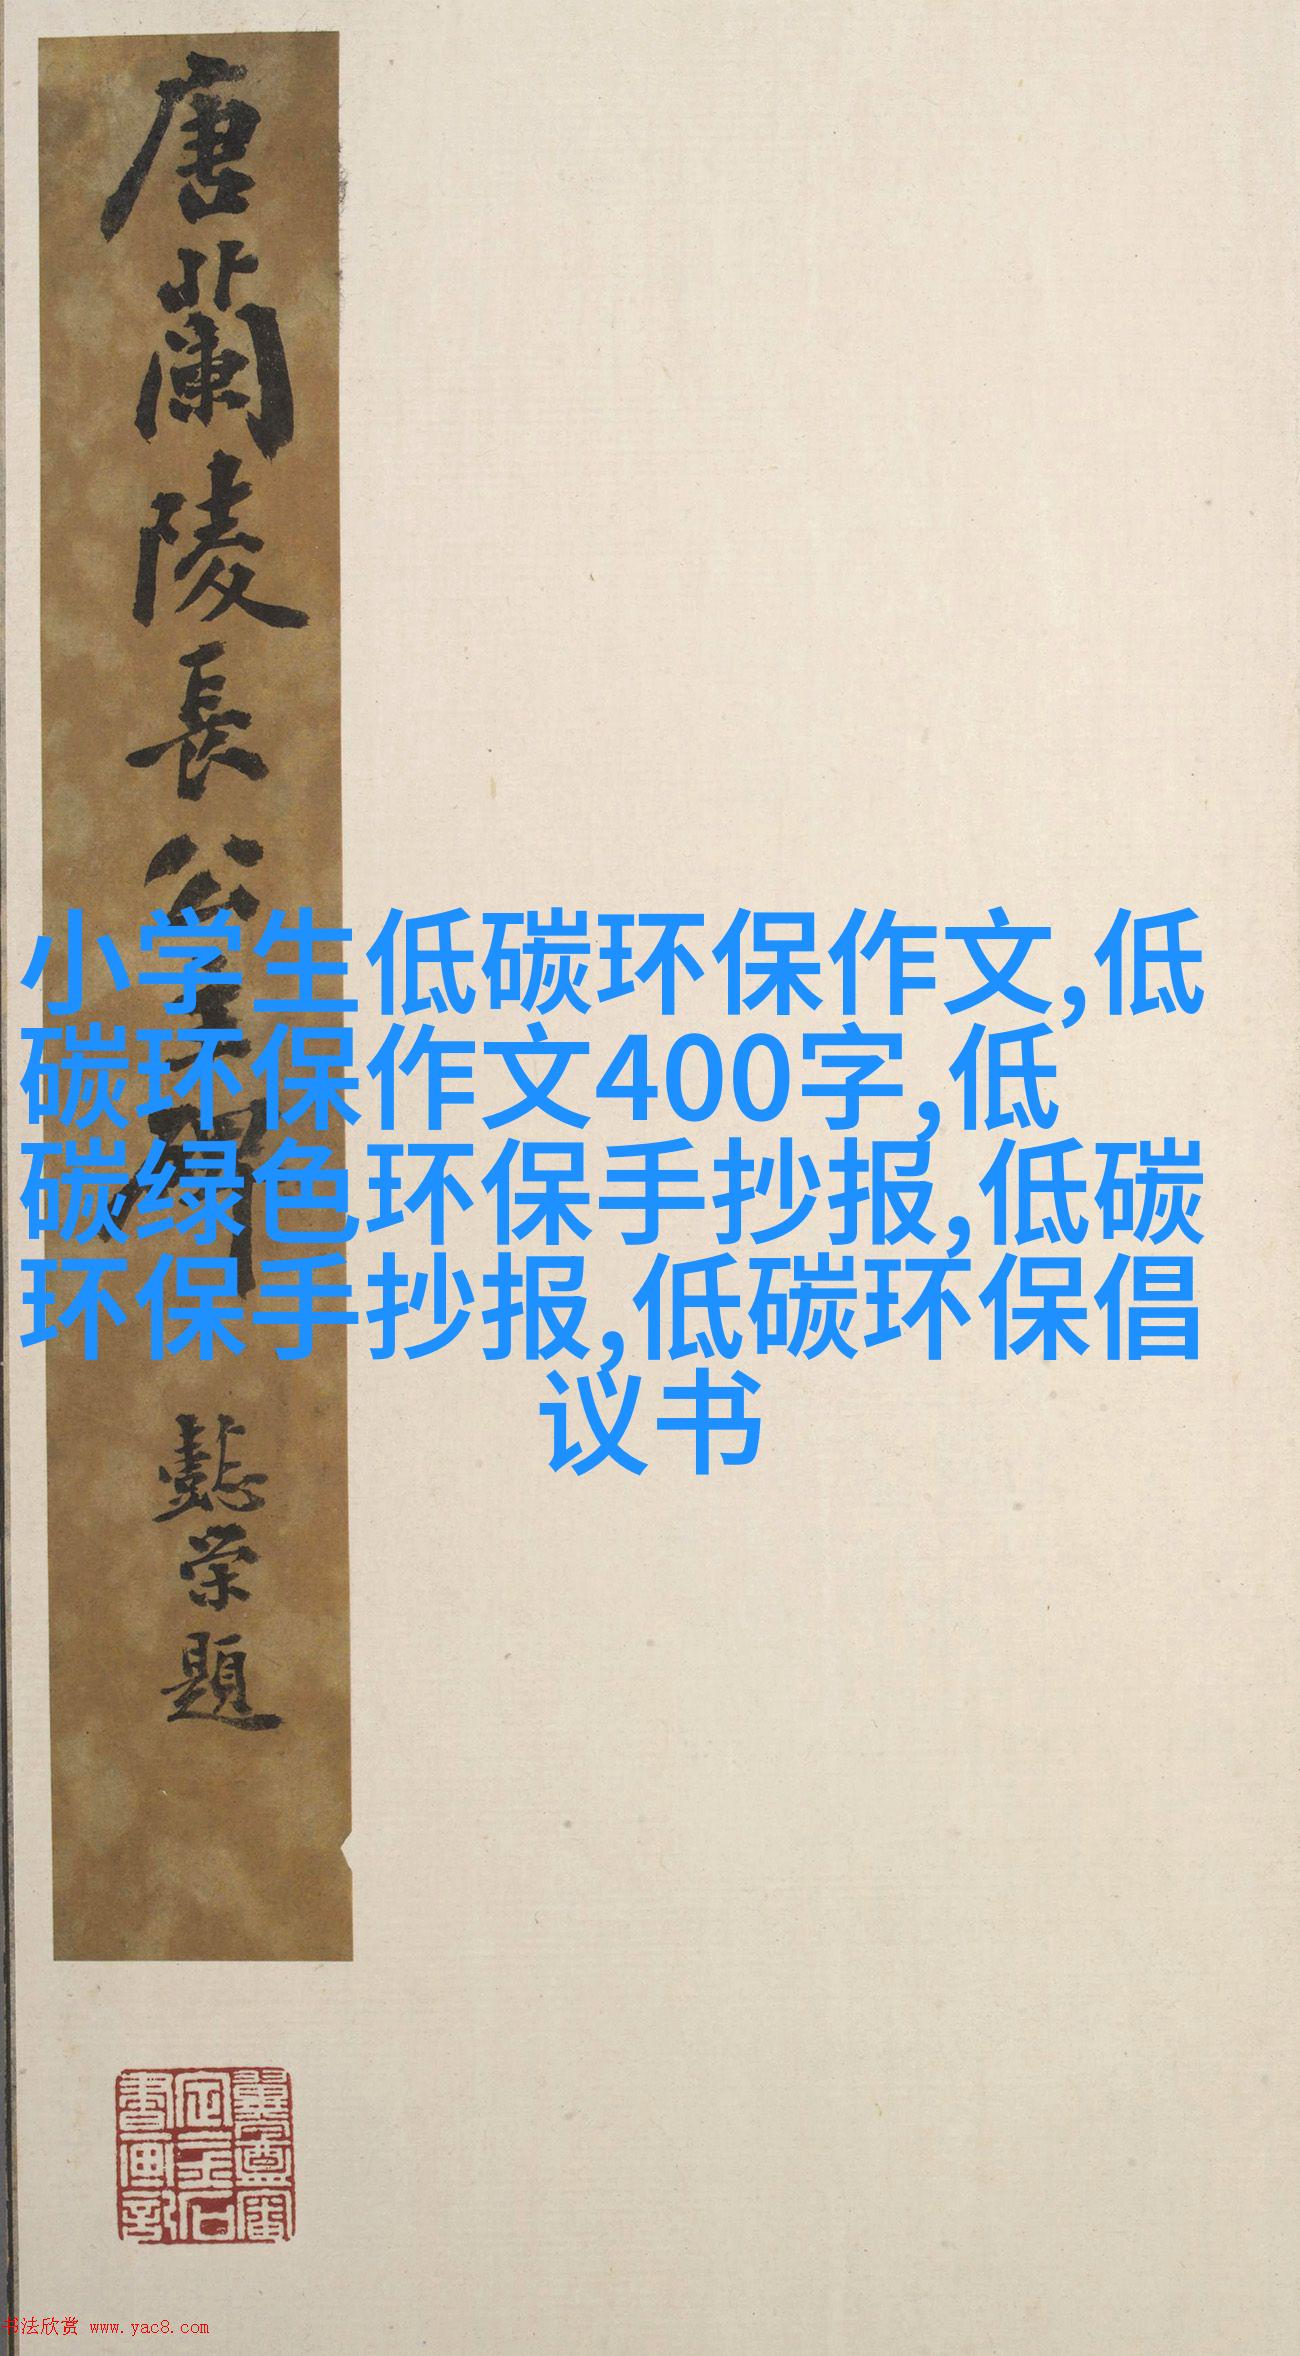 唐蘭陵長公主碑
小学生低碳环保作文,低
碳环保作文400字,低
碳绿色环保手抄报,低碳
环保手抄报,低碳环保倡
议书
榮題
定
金石
書畫記
书法欣赏 www.yac8.com